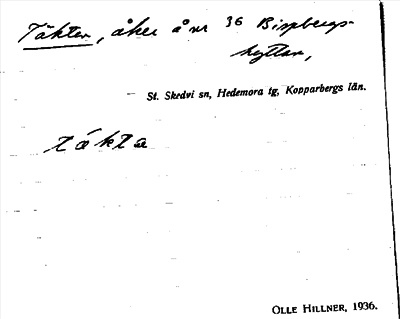 Täkten, åker å nr 36 Bispbergs-
hyttan,
St. Skedvi sn, Hedemora tg, Kopparbergs län.
tákta
OLLE HILLNER, 1936.